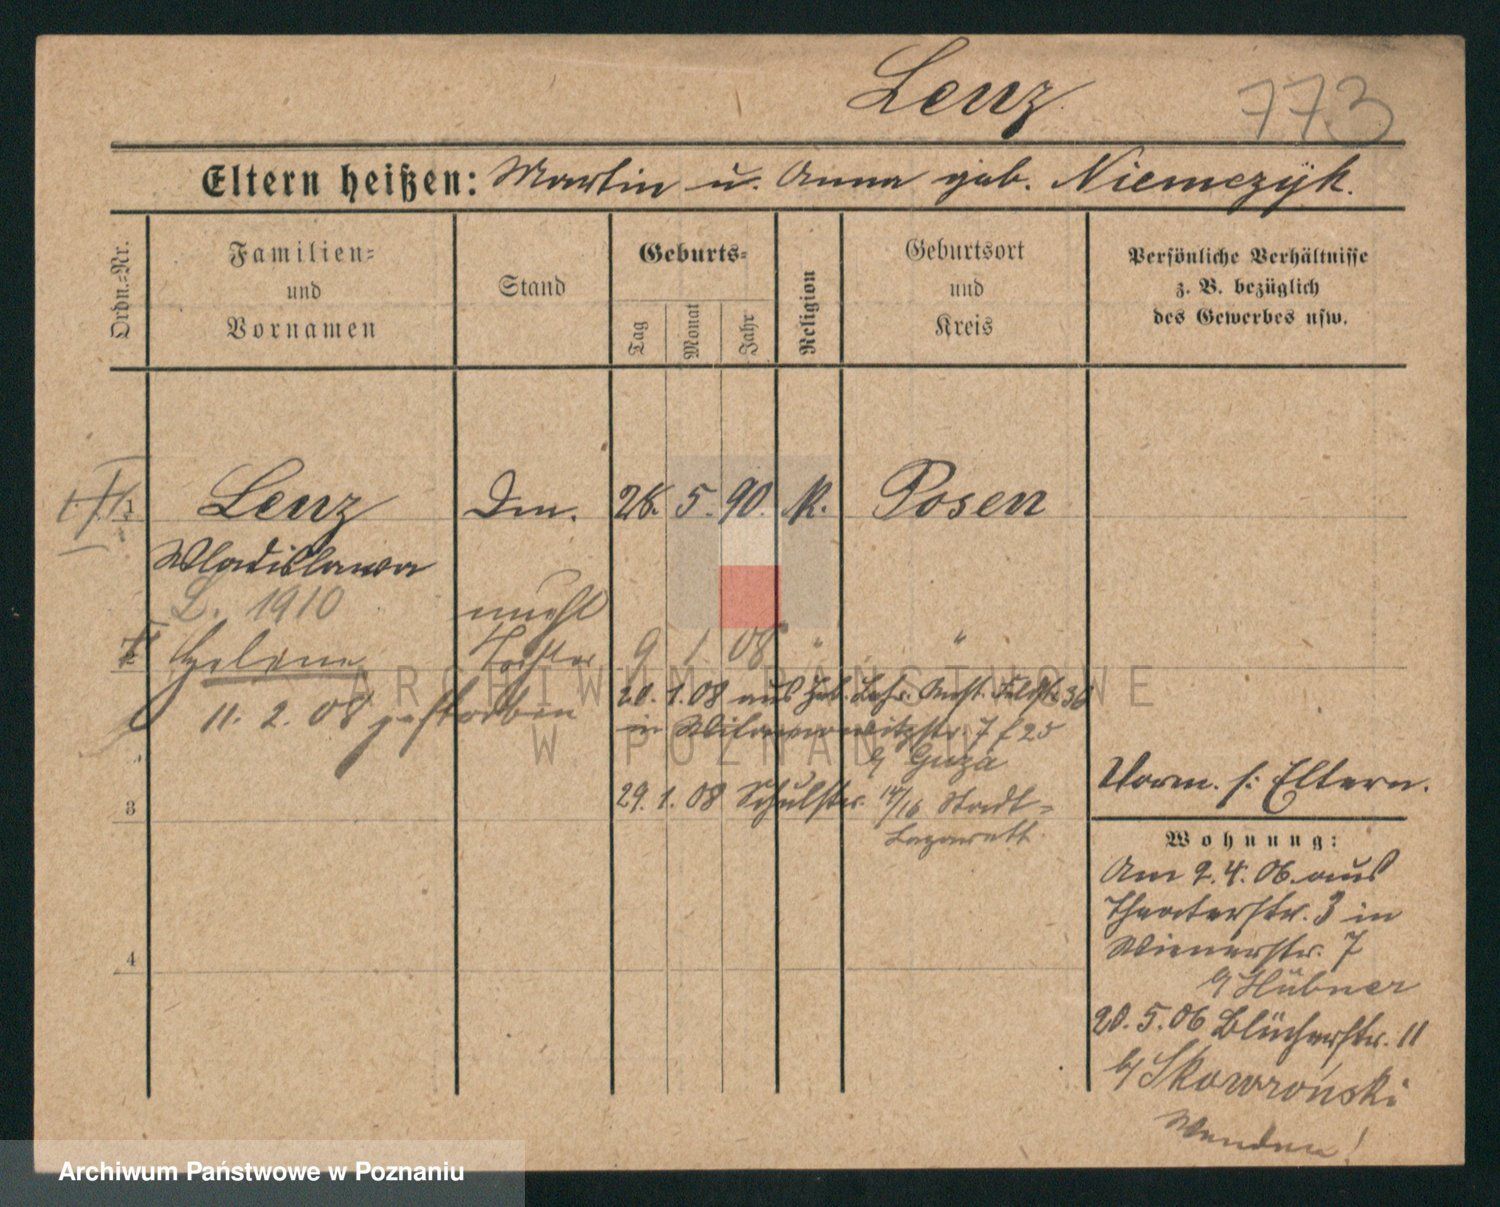 Lenz 773
Eltern heißen: Martin u. Anna geb. Niemczÿk.
Ordn.-Nr.
Familien-
und
Vornamen
Stand
Geburts-
Tag
Monat
Jahr
Religion
Geburtsort
und
Kreis
Persönliche Verhältnisse
z. B. bezüglich
des Gewerbes usw.
Lenz 28. 5. 90. K. Posen
Wladislawa
L. 1910 unehl
Helene Tochter 9 1 08 " "
20. 1. 08 aus Feldstr. 30
11. 2. 08 gestorben
in 7
b/ Guza
29. 1. 08 Schulstr. 14/16 Stadt-
Lazarett
3
4
Vorm. s. Eltern.
Wohnung:
Am 2. 4. 06. aus
Theaterstr. 3 in
Wienerstr. 7
b/ Hübner
20. 5. 06 Blücherstr. 11
b/ Skowroński
Wenden!
ARCHIWUM PAŃSTWOWE
W POZNANIU
Archiwum Państwowe w Poznaniu